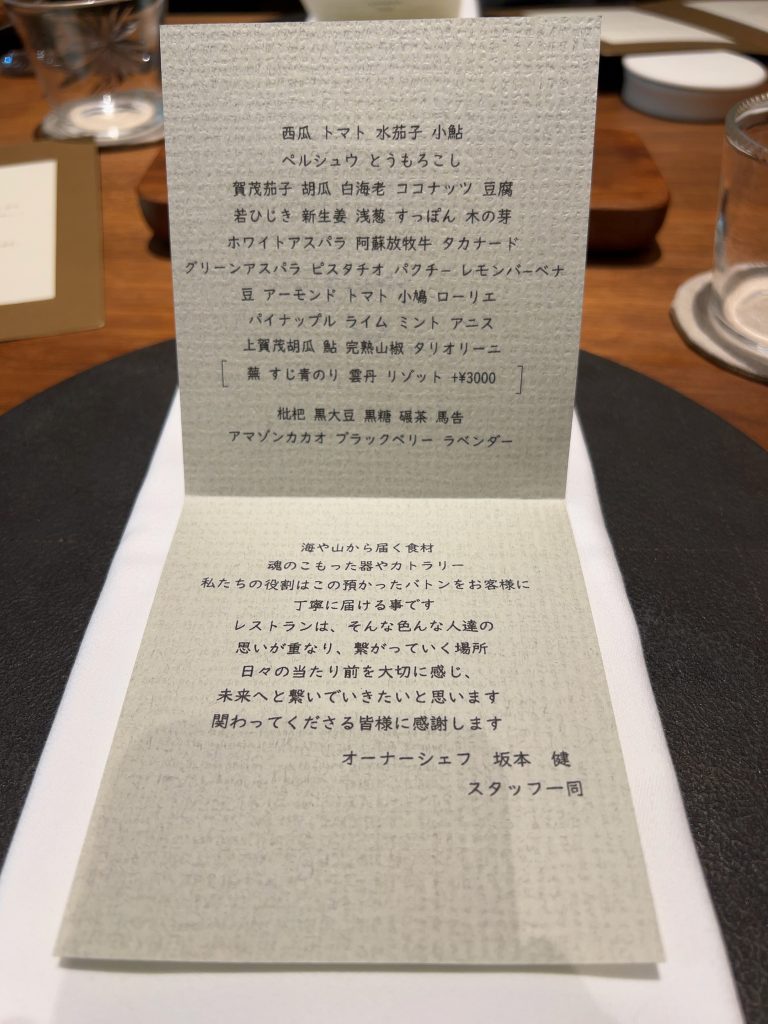 西瓜 トマト 水茄子 小鮎
ペルシュウ とうもろこし
賀茂茄子 胡瓜 白海老 ココナッツ 豆腐
若ひじき 新生姜 浅葱 すっぽん 木の芽
ホワイトアスパラ 阿蘇放牧牛 タカナード
グリーンアスパラ ピスタチオ パクチー レモンバーベナ
豆 アーモンド トマト 小鳩 ローリエ
パイナップル ライム ミント アニス
上賀茂胡瓜 鮎 完熟山椒 タリオリーニ
[ 蕪 すじ青のり 雲丹 リゾット +¥3000 ]
枇杷 黒大豆 黒糖 碾茶 馬告
アマゾンカカオ ブラックベリー ラベンダー
海や山から届く食材
魂のこもった器やカトラリー
私たちの役割はこの預かったバトンをお客様に
丁寧に届ける事です
レストランは、そんな色んな人達の
思いが重なり、繋がっていく場所
日々の当たり前を大切に感じ、
未来へと繋いでいきたいと思います
関わってくださる皆様に感謝します
オーナーシェフ 坂本 健
スタッフ一同